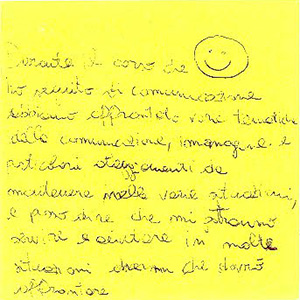 Durante il corso che
ho seguito di comunicazione
abbiamo affrontato varie tematiche
dalla comunicazione, immagine e
particolari atteggiamenti da
mantenere nelle varie situazioni,
e posso dire che mi
servire e aiutare in molte
situazioni che dovrò
affrontare